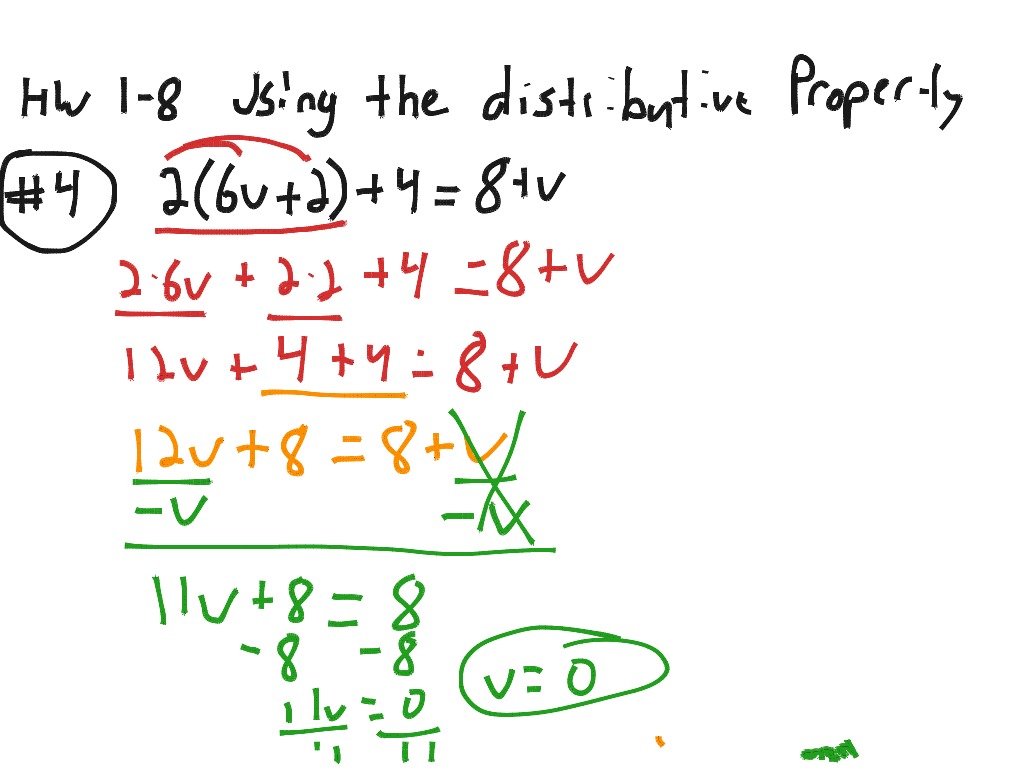 HW 1-8 Using the distributive Property
#4 2(6v+2)+4=8+v
2·6v + 2·2 +4 =8+v
12v + 4+4 = 8+v
12v+8 = 8+v
-v -v
11v+8 = 8
-8 -8
11v = 0
11 11
v=0